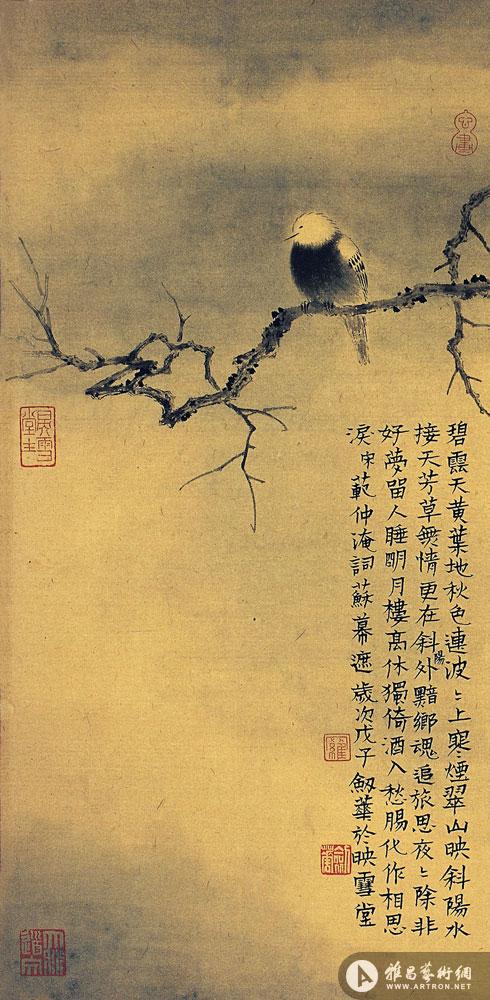 碧雲天黄葉地秋色連波〻上寒煙翠山映斜陽水
接天芳草無情更在斜陽外黯鄉魂追旅思夜〻除非
好夢留人睡明月樓高休獨倚酒入愁腸化作相思
淚宋範仲淹詞蘇幕遮歲次戊子劒華於映雪堂
雅昌藝術網
WWW.ARTRON.NET